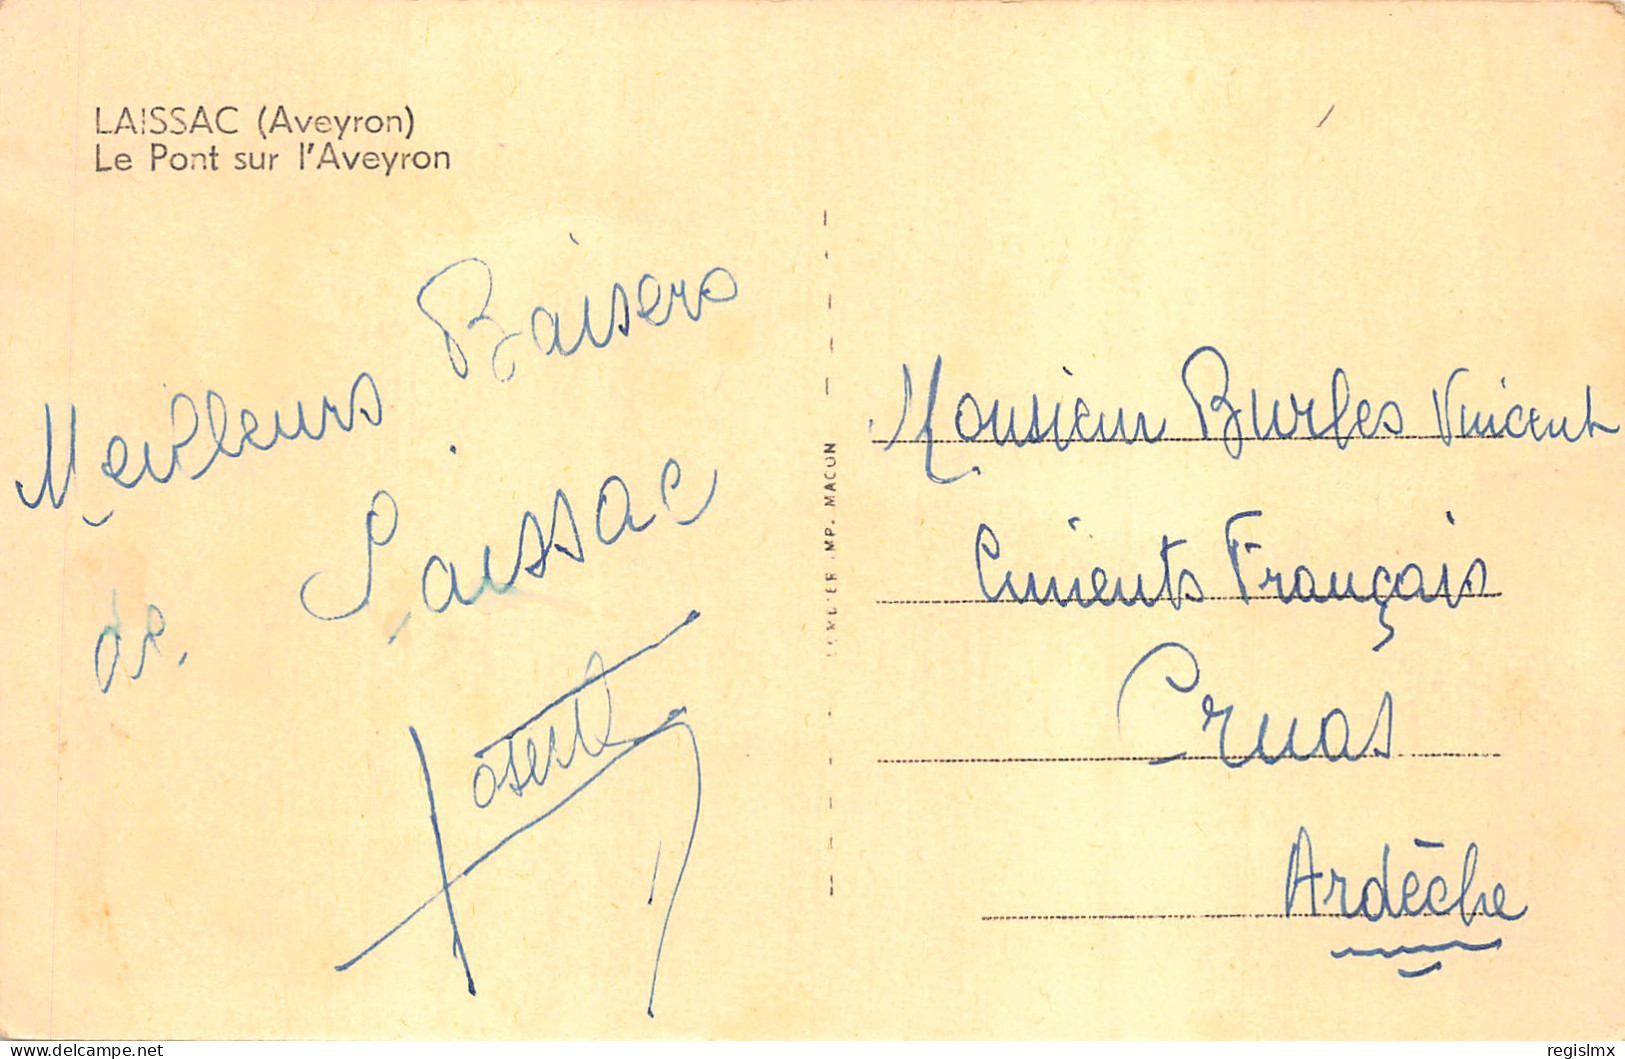 LAISSAC (Aveyron)
Le Pont sur l'Aveyron
Meilleurs Baisers
de Laissac
IMP. MACON
Monsieur Burles Vincent
Ciments Français
Cruas
Ardèche
delcampe.net
regislmx